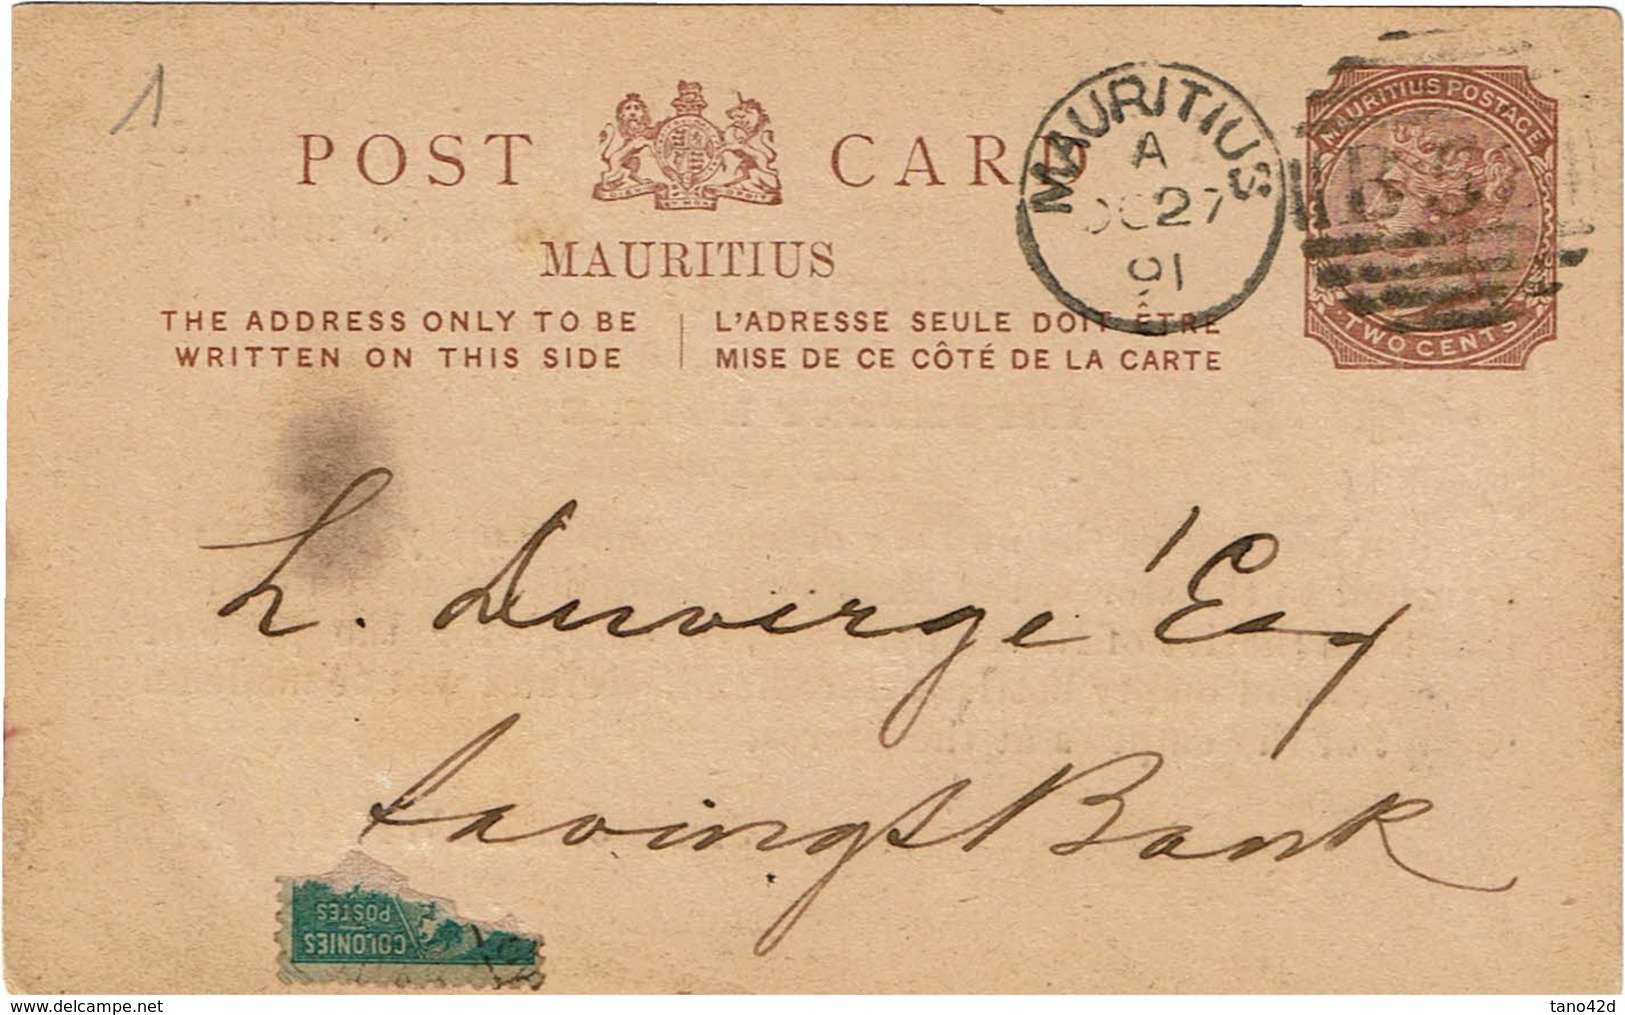 1
POST CARD
MAURITIUS
THE ADDRESS ONLY TO BE
WRITTEN ON THIS SIDE
L'ADRESSE SEULE DOIT ÊTRE
MISE DE CE CÔTÉ DE LA CARTE
MAURITIUS
A
OC 27
91
MAURITIUS POSTAGE
TWO CENTS
B
L. Duvergé Esq
Savings Bank
COLONIES
POSTES
www.delcampe.net
tano42d